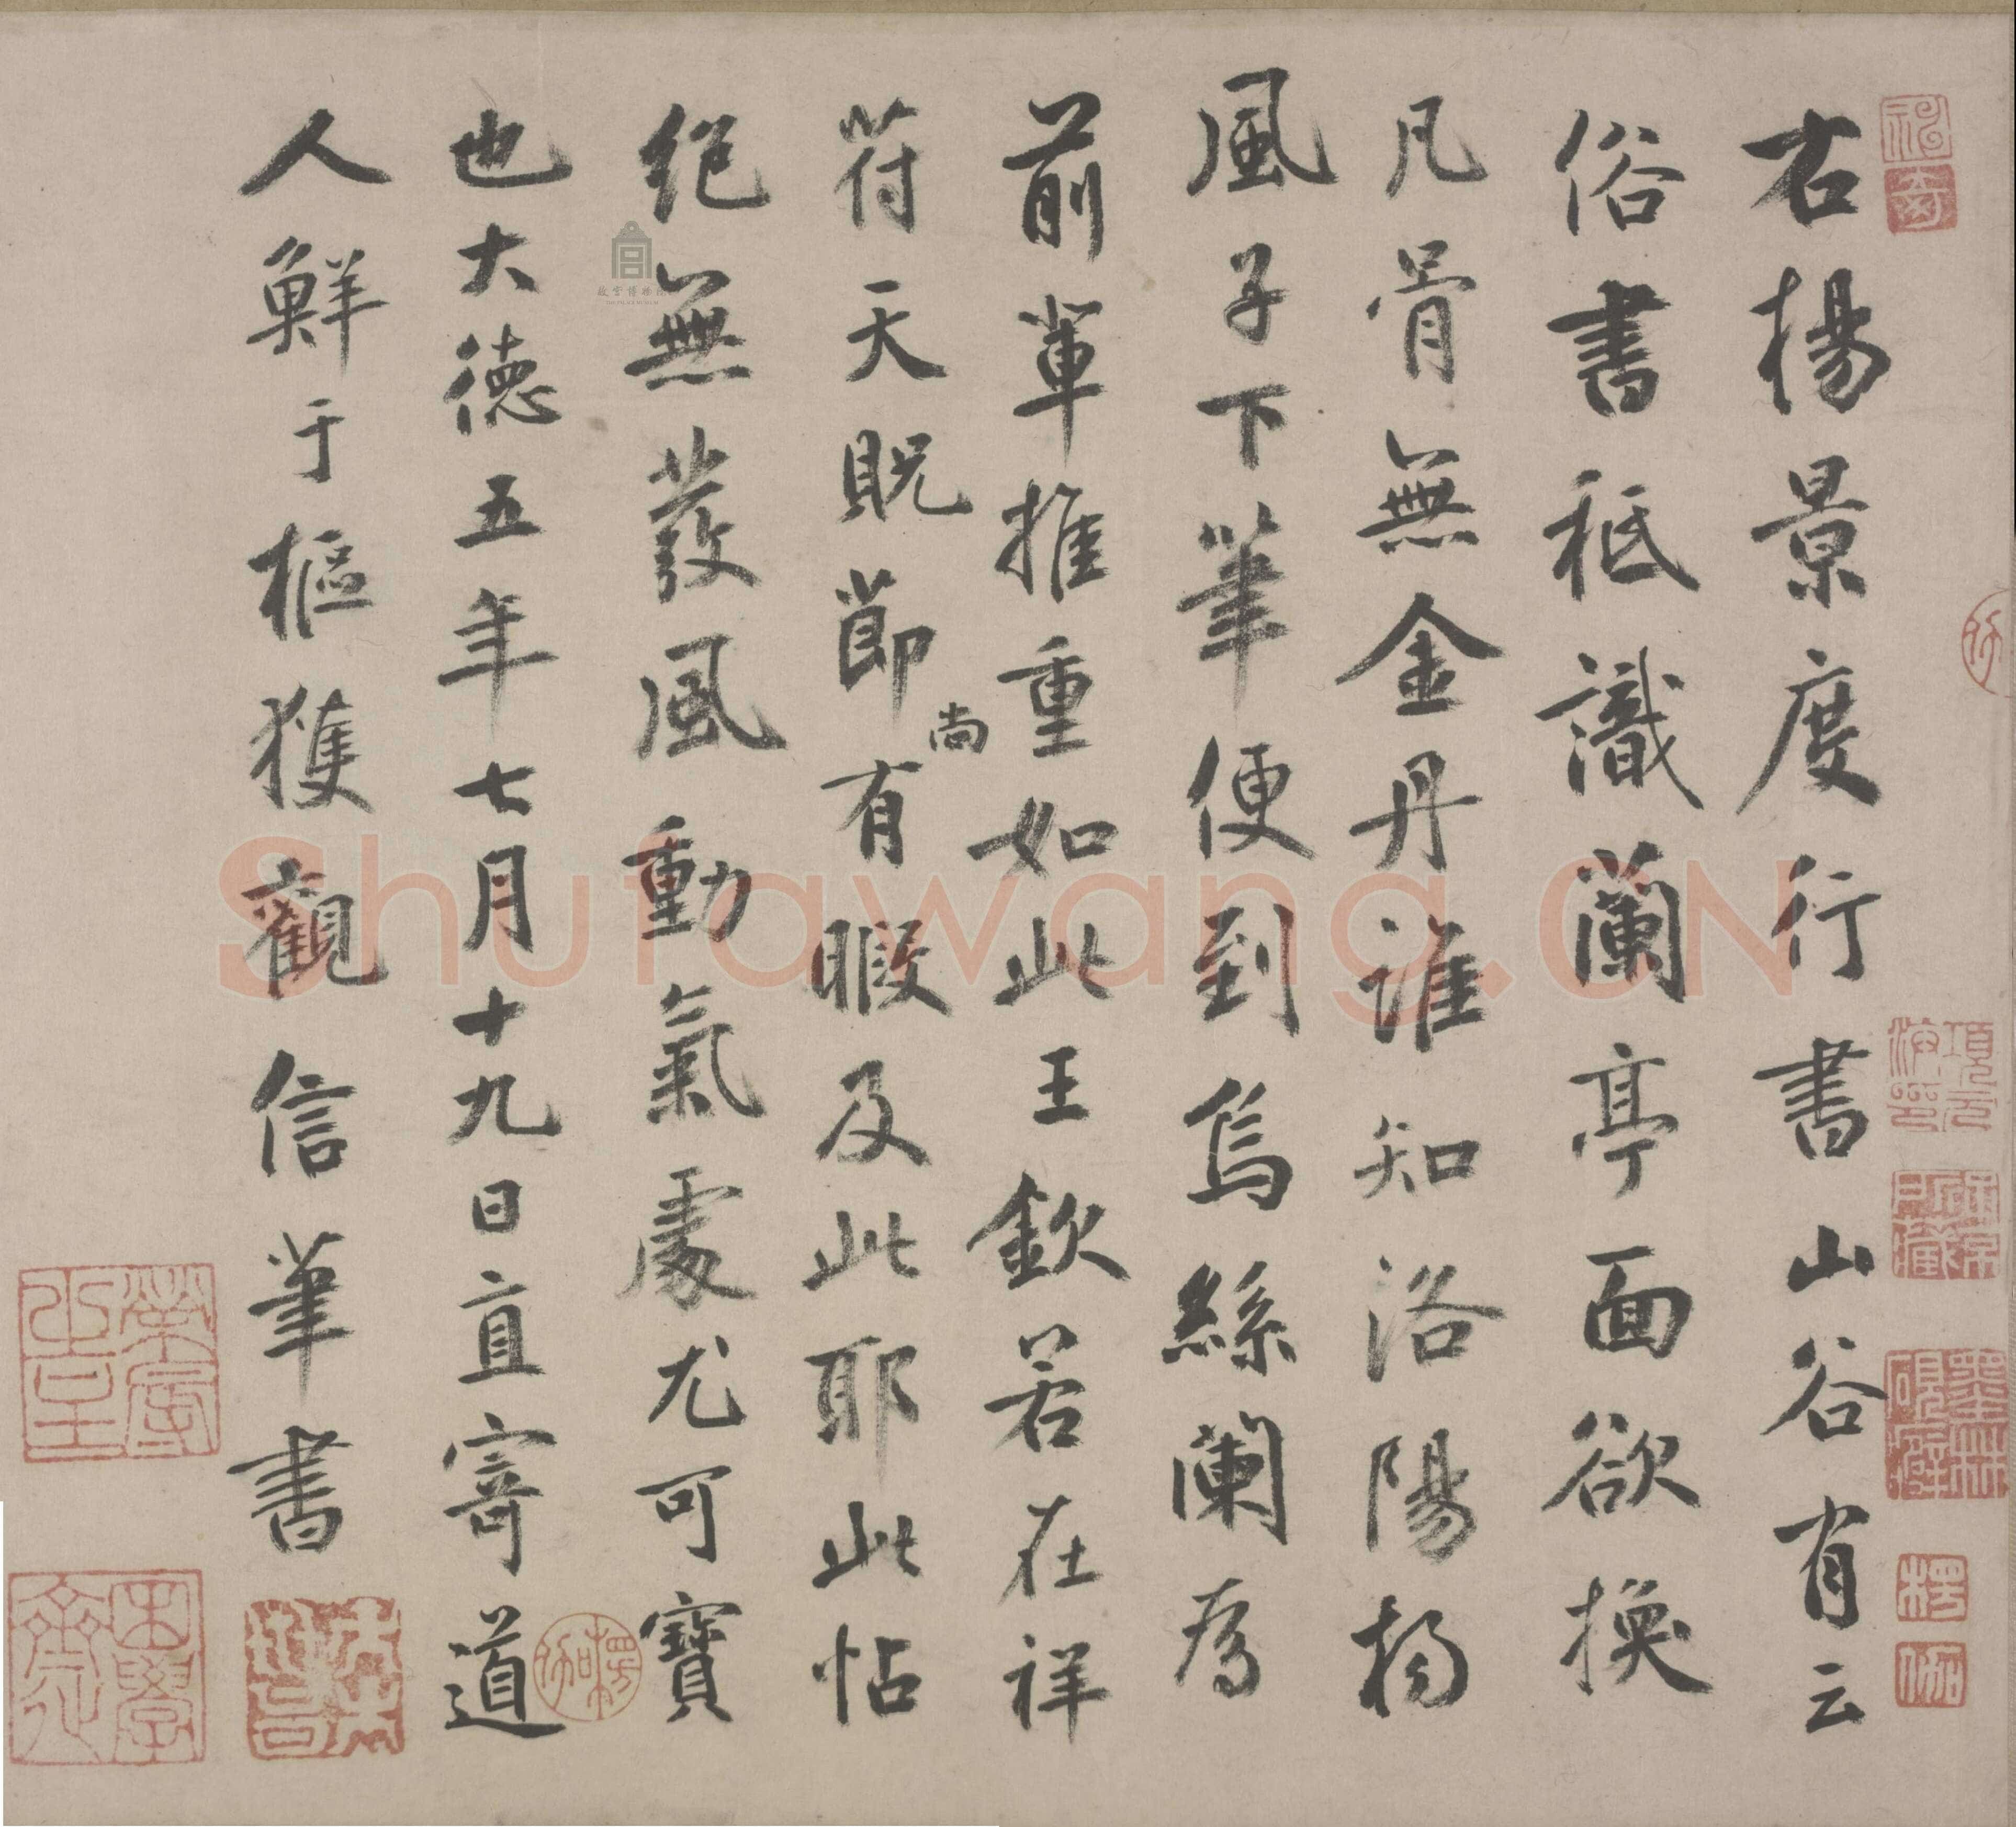 右楊景度行書山谷有云
俗書秪識蘭亭面欲換
凡骨無金丹誰知洛陽楊
風子下筆便到烏絲闌為
前輩推重如此王欽若在祥
符天貺節尚有暇及此耶此帖
絕無蕟風動氣處尤可寶
也大德五年七月十九日直寄道
人鮮于樞獲觀信筆書
Shufawang.CN
故宮博物院
楞伽